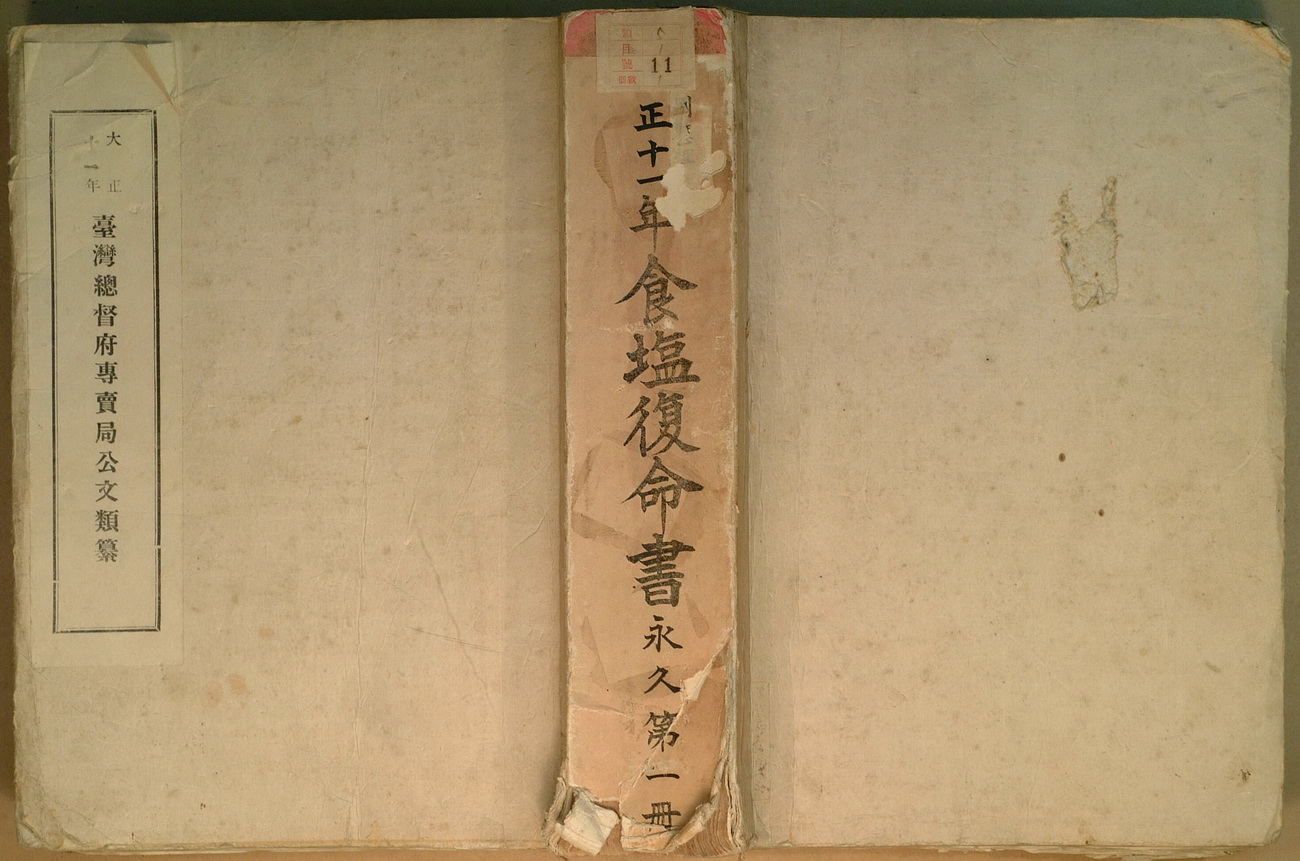 大正
十一年
臺灣總督府專賣局公文類纂
類
目
號
冊數
11
正十一年食塩復命書永久第一冊